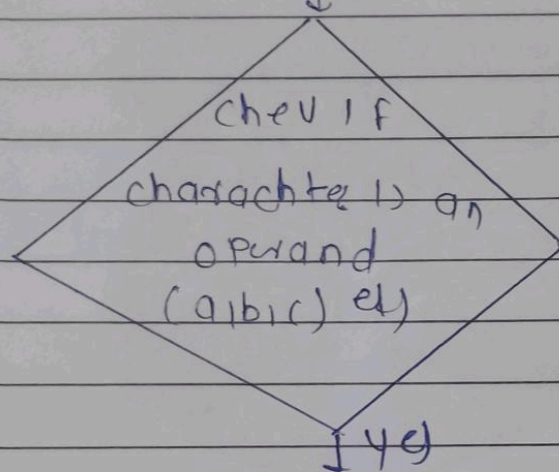 chev if
charachter is an
operand
(a,b,c) etc)
yes